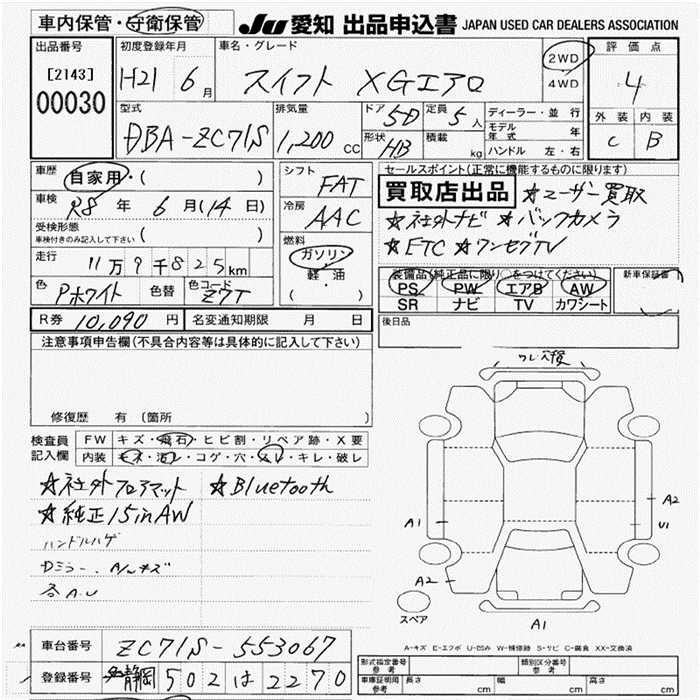 車内保管・守衛保管
JU 愛知 出品申込書 JAPAN USED CAR DEALERS ASSOCIATION
出品番号
[2143]
00030
初度登録年月
H21 6月
車名・グレード
スイフト XGエアロ
2WD
4WD
評価点
4
外装 内装
C B
型式
DBA-ZC71S
排気量
1,200 CC
ドア 5D
定員 5人
形状 HB
積載 kg
ディーラー・並行
モデル年式 年
ハンドル 左・右
車歴 自家用・( )
車検 R8年 6月(14日)
受検形態
車検付きのみ記入して下さい ( )
走行 11万9千825km
色 Pホワイト 色替 色コード Z7T
シフト FAT
冷房 AAC
燃料
ガソリン
軽・油
( ・ )
セールスポイント(正常に機能するものに限ります)
買取店出品 ★ユーザー買取
★社外ナビ ★バックカメラ
★ETC ★ワンセグTV
装備品(純正品に限り○をつけてください)
PS PW エアB AW
SR ナビ TV カワシート
新車保証書
R券 10,090円 名変通知期限 月 日
後日品
注意事項申告欄(不具合内容等は具体的に記入して下さい)
修復歴 有(箇所 )
検査員記入欄
FW キズ・飛石・ヒビ割・リペア跡・X要
内装 キズ・汚レ・コゲ・穴・スレ・キレ・破レ
★社外フロアマット ★Bluetooth
★純正15inAW
ハンドルハゲ
Dミラー、A/Wキズ
各A.U
ワレ穴後
A1
A2
U1
A2
A1
スペア
A-キズ E-エクボ U-凹み W-補修跡 S-サビ C-腐食 XX-交換済
車台番号 ZC71S-553067
登録番号 静岡 502 は 2270
形式指定番号 参考
類別区分番号 参考
車庫証明用 参考 長さ cm 幅 cm 高さ cm